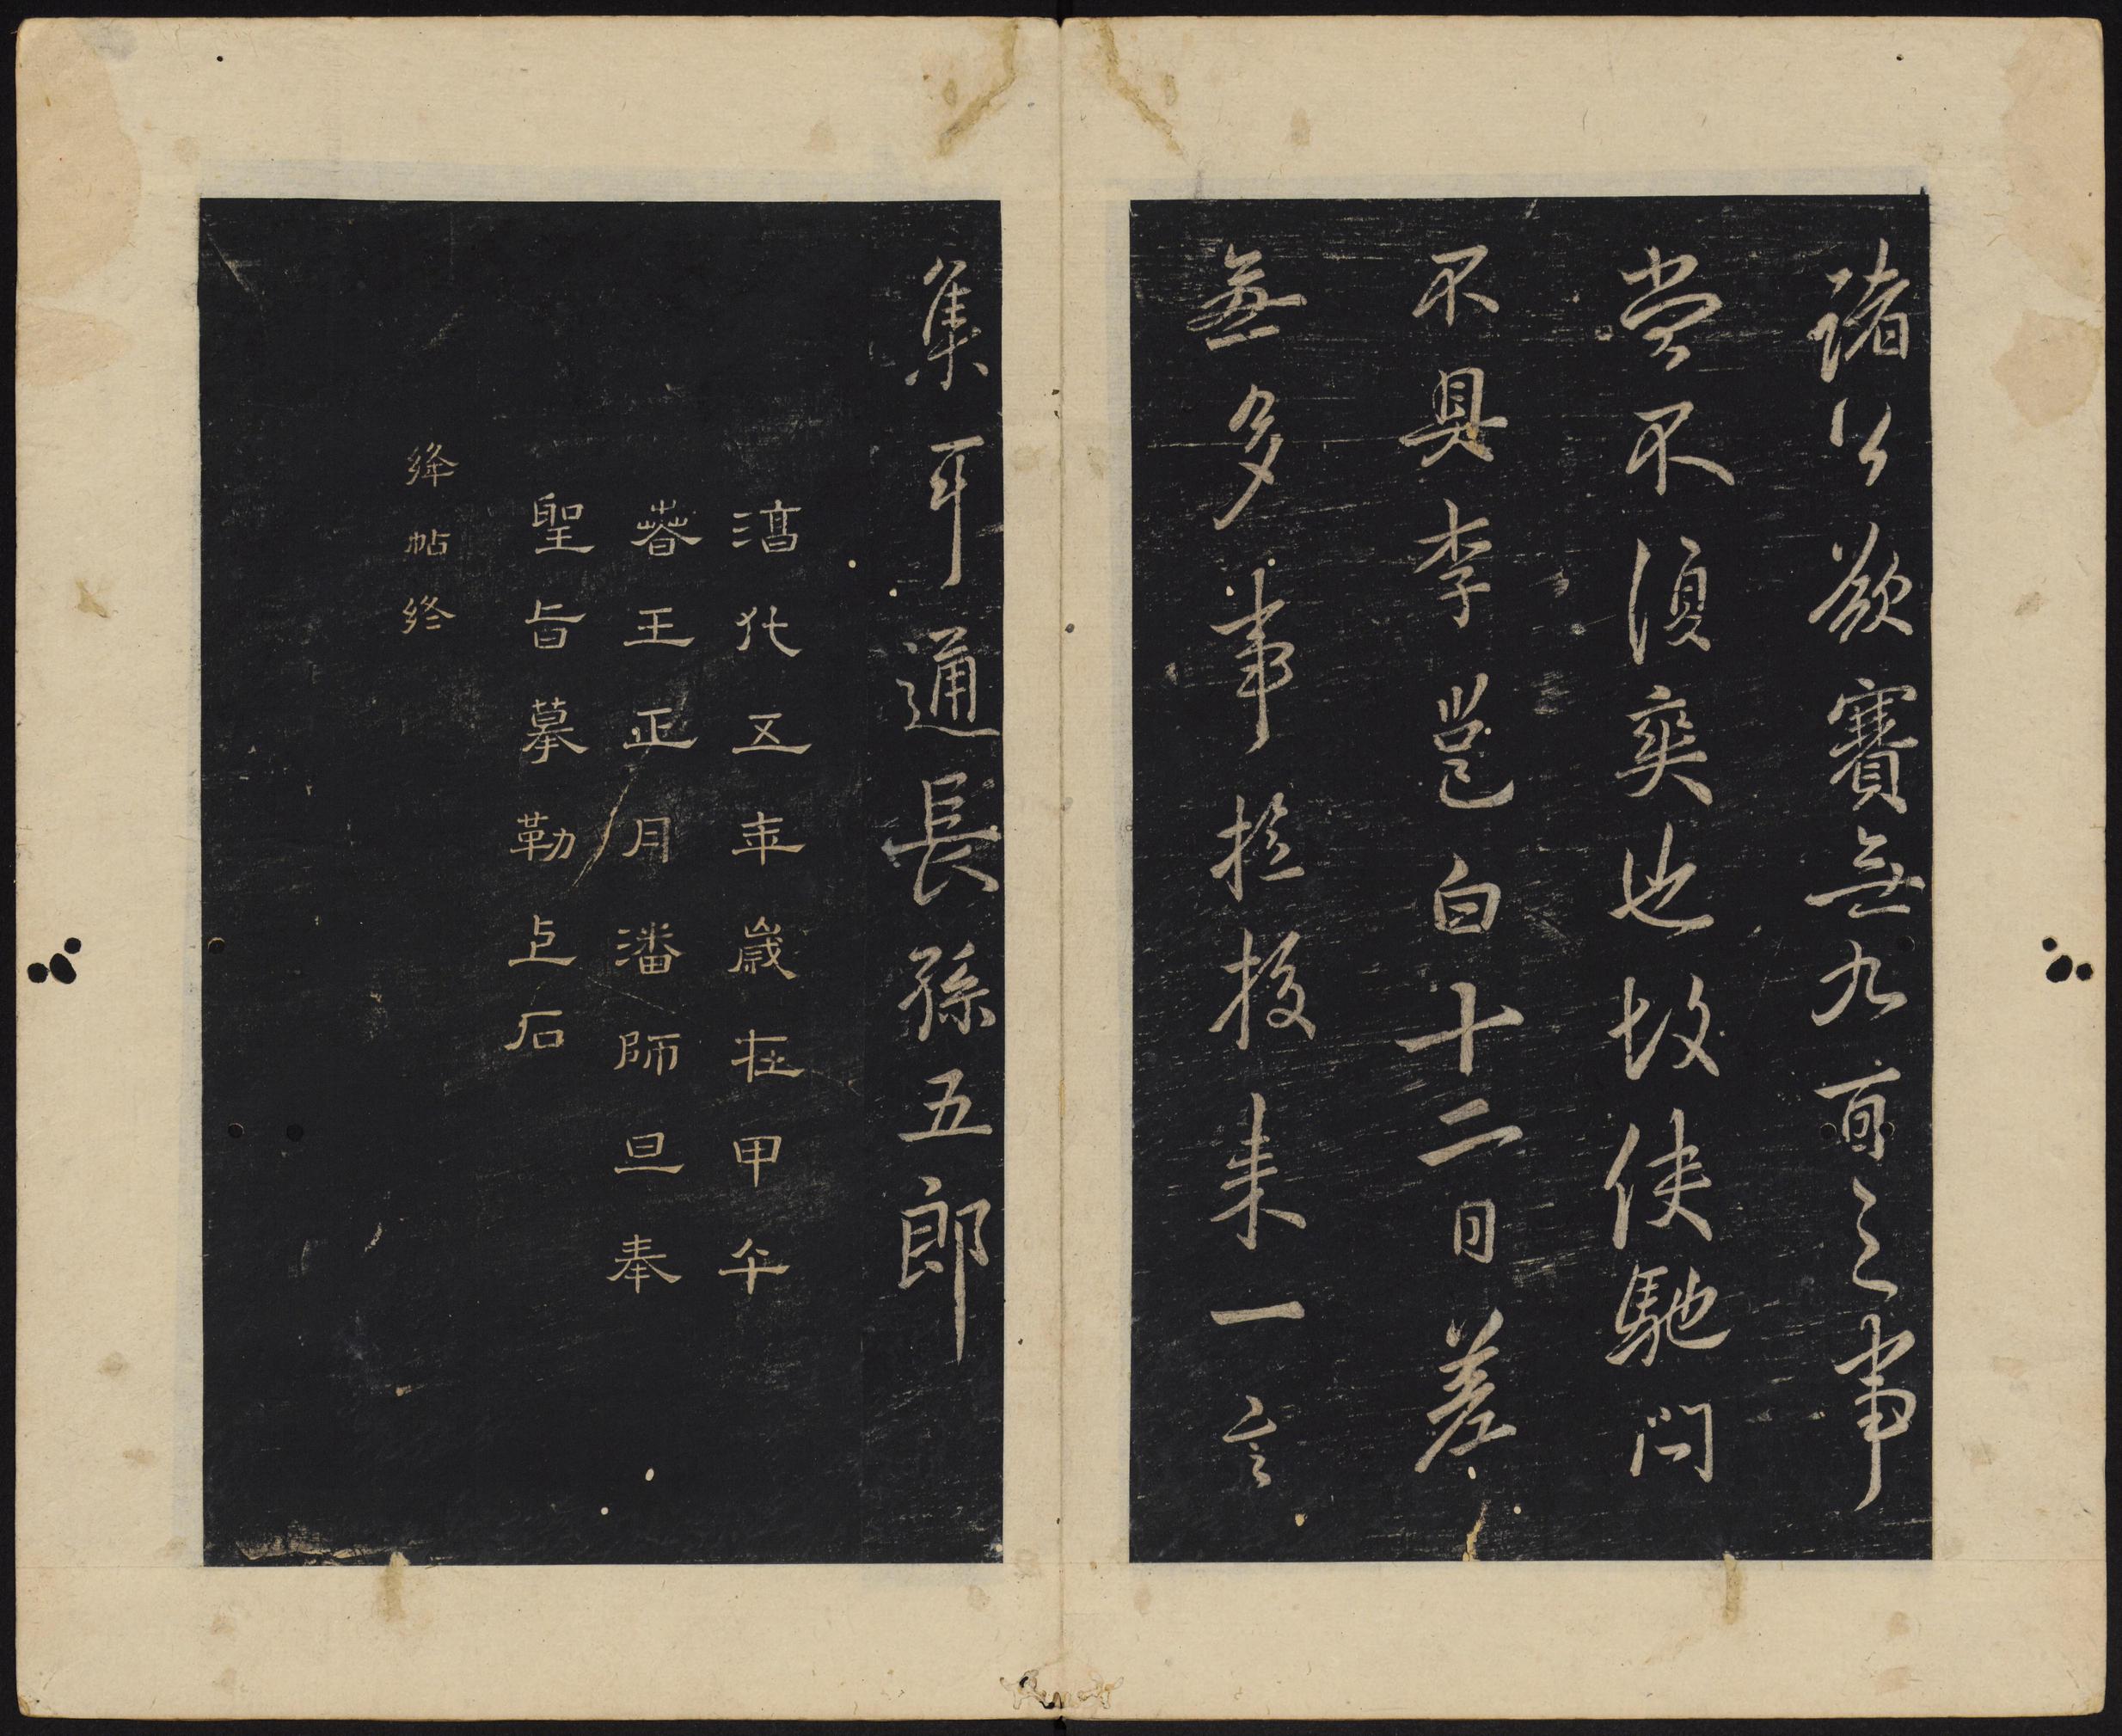 諸公欲賽無九百之事
當不復奕也故使馳問
不具李邕白十二日差
無多事撿挍来一言
集耳通長孫五郎
淳化五年歲在甲午
春王正月潘師旦奉
聖旨摹勒上石
絳帖終